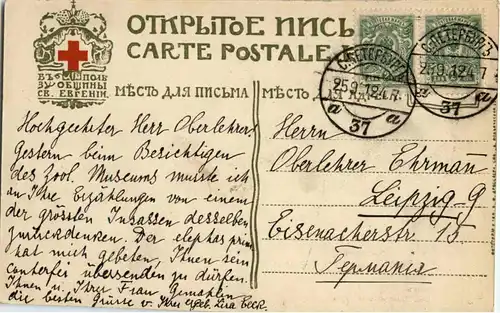 ОТКРЫТОЕ ПИСЬ
CARTE POSTALE
ВЪ ПОЛЬ
ЗУ ОБЩИНЫ
СВ. ЕВГЕНІИ
МѢСТО ДЛЯ ПИСЬМА
МѢСТО
С.ПЕТЕРБУРГЪ
25.9.12 4-7.
а 37 а
С.ПЕТЕРБУРГЪ
25.9.12 4-7
37 а
Hochgeehrter Herr Oberlehrer
Gestern beim Besichtigen
des Zool. Museums musste ich
an Ihre Erzählungen von einem
der grössten Insassen desselben
zurückdenken. Der elephas prim.
hat mich gebeten, Ihnen sein
conterfei übersenden zu dürfen.
Ihnen u. Ihrer Frau Gemahlin
die besten Grüsse v. Ihrer ergeb. Lisa Beck.
Herrn
Oberlehrer Ehrman
Leipzig-G
Eisenacherstr 15
Германія